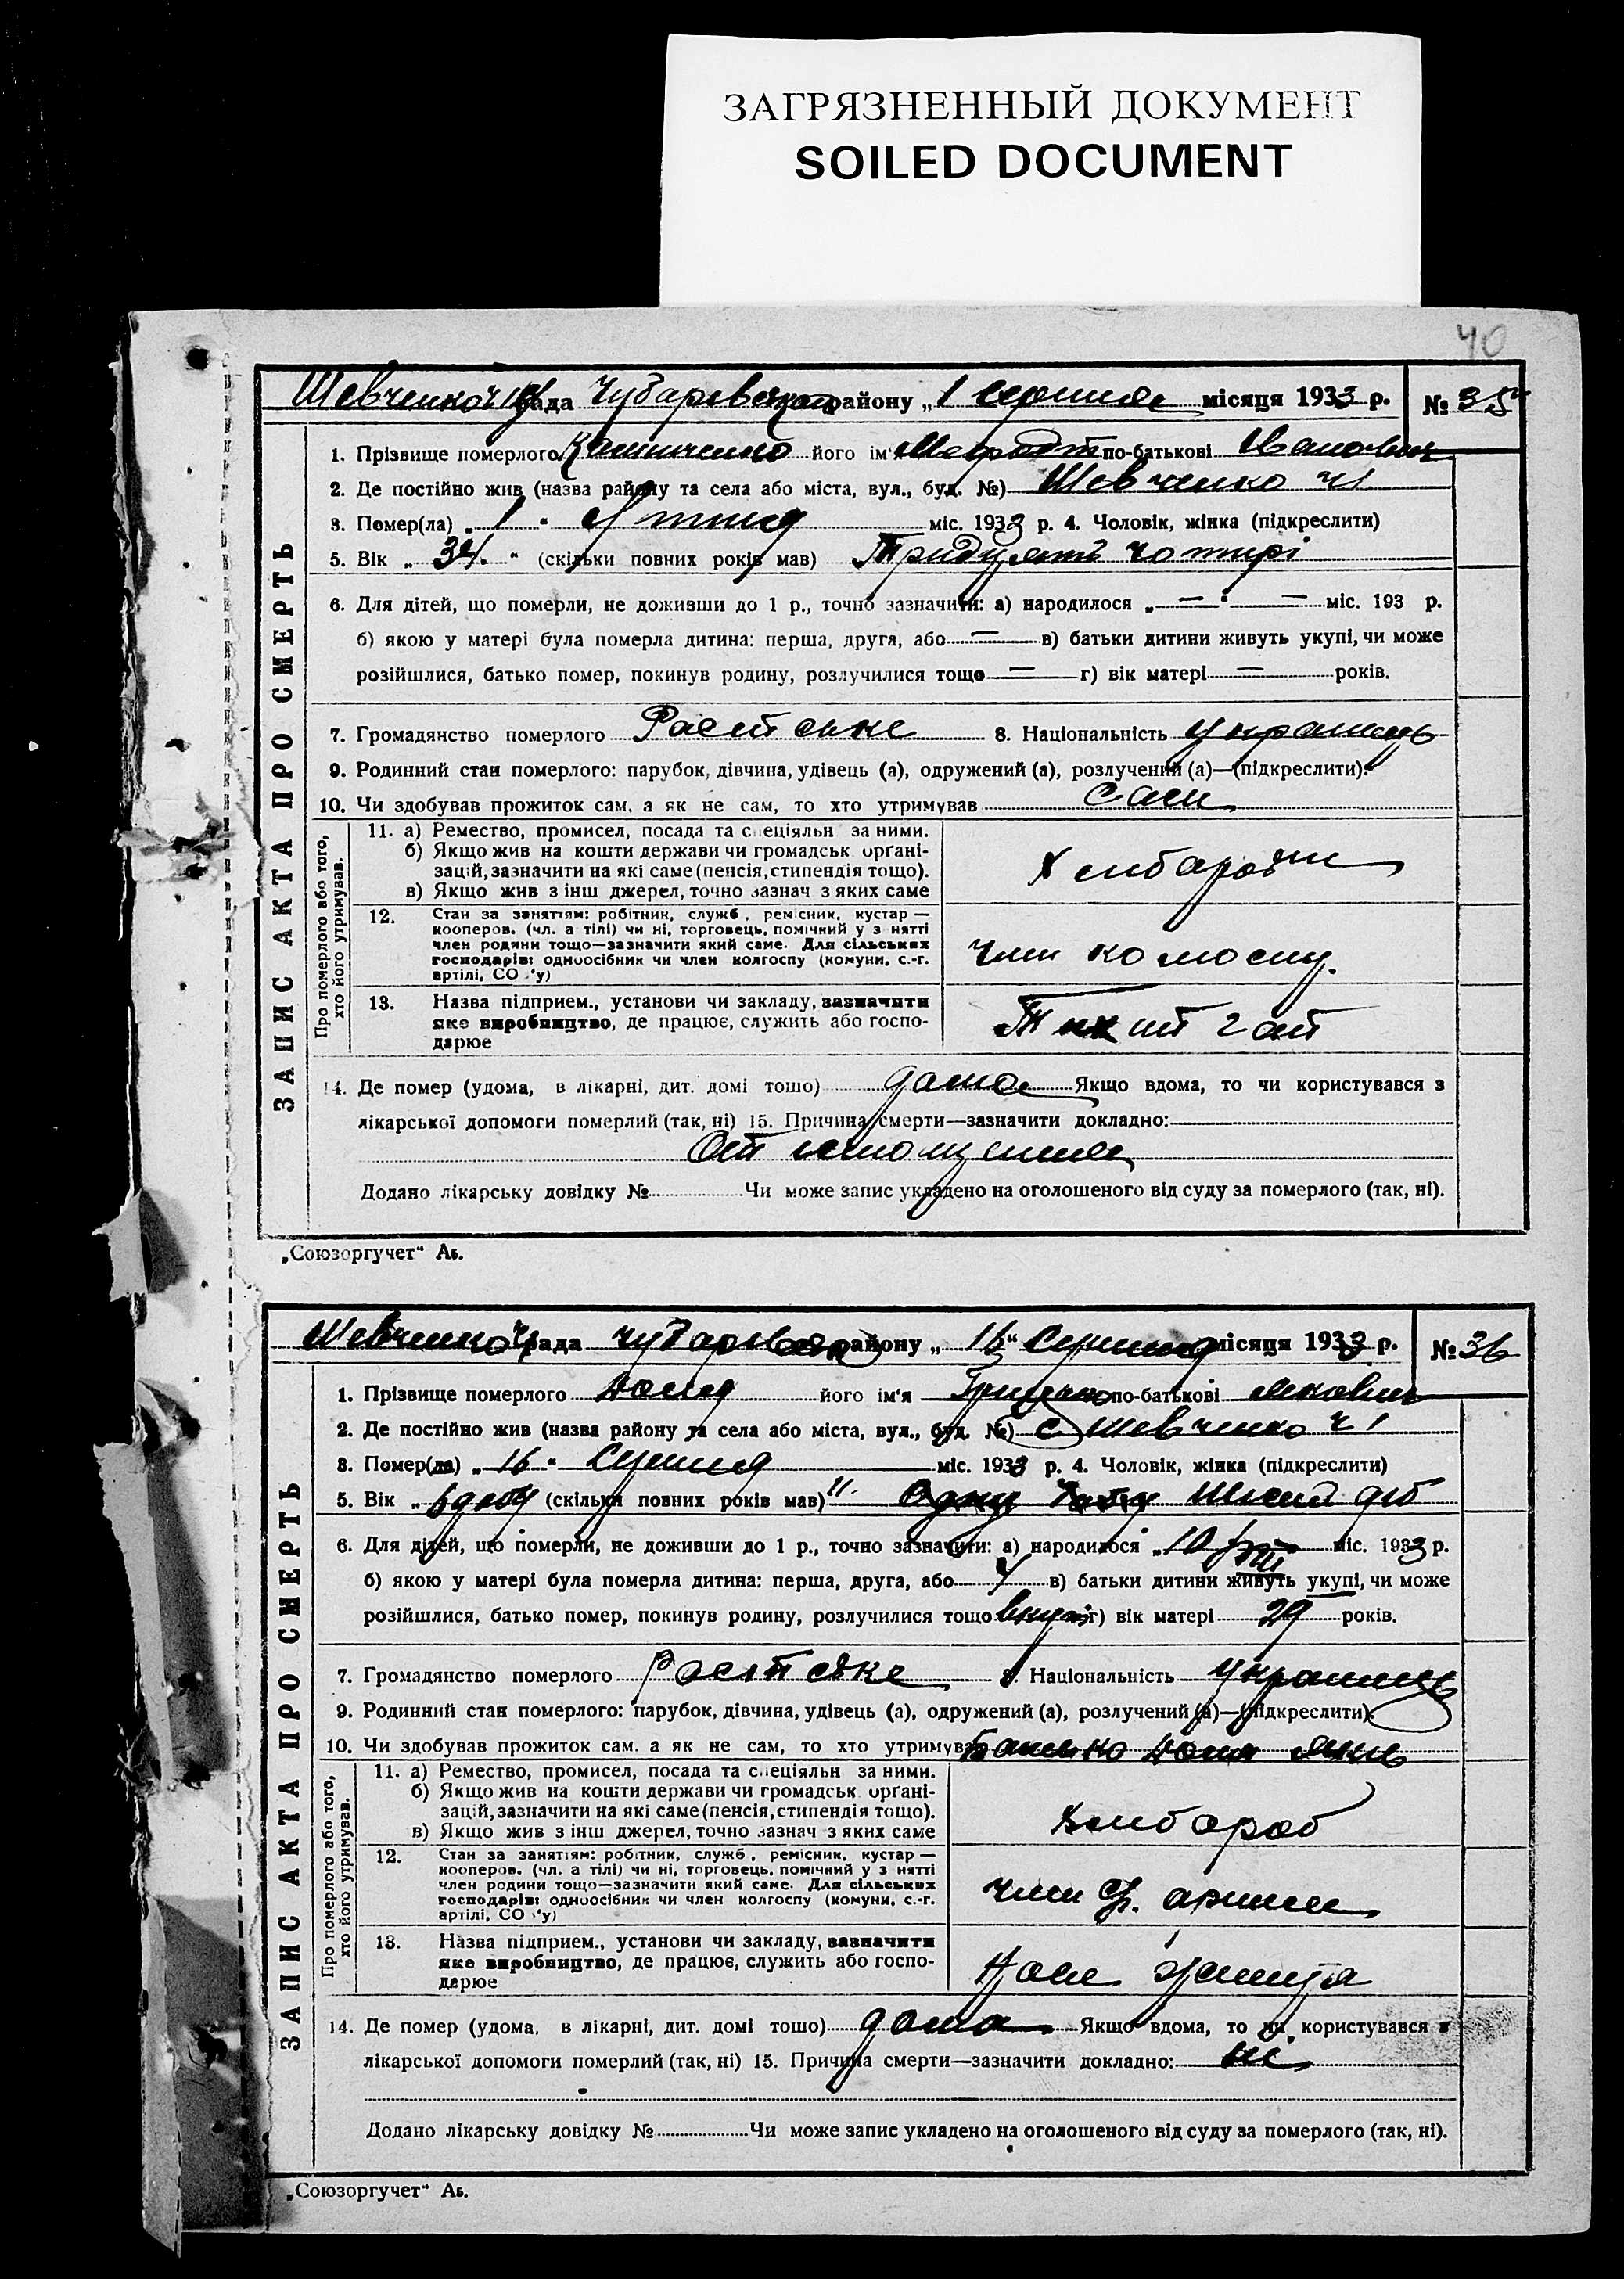 ЗАГРЯЗНЕННЫЙ ДОКУМЕНТ
SOILED DOCUMENT
40
рада району „1 серпня місяця 1933 р. № 35
ЗАПИС АКТА ПРО СМЕРТЬ
1. Прізвище померлого його ім'я по-батькові Іванович
2. Де постійно жив (назва району та села або міста, вул., буд. №) Шевченко ч1
3. Помер(ла) „1" міс. 1933 р. 4. Чоловік, жінка (підкреслити)
5. Вік „34." (скільки повних років мав) Тридцять чотирі
6. Для дітей, що померли, не доживши до 1 р., точно зазначити: а) народилося „—" — міс. 193 р.
б) якою у матері була померла дитина: перша, друга, або — в) батьки дитини живуть укупі, чи може
розійшлися, батько помер, покинув родину, розлучилися тощо — г) вік матері — років.
7. Громадянство померлого 8. Національність Українець
9. Родинний стан померлого: парубок, дівчина, удівець (а), одружений (а), розлучений (а)—(підкреслити).
10. Чи здобував прожиток сам, а як не сам, то хто утримував Сам
Про померлого або того, хто його утримував.
11. а) Ремество, промисел, посада та спеціяльн за ними.
б) Якщо жив на кошти держави чи громадськ орґані-
зацій, зазначити на які саме (пенсія, стипендія тощо).
в) Якщо жив з інш джерел, точно зазнач з яких саме
12. Стан за заняттям: робітник, служб, ремісник, кустар —
кооперов. (чл. а тілі) чи ні, торговець, помічний у з нятті
член родини тощо—зазначити який саме. Для сільських
господарів: одноосібник чи член колгоспу (комуни, с.-г.
артілі, СО у)
член колгоспу.
13. Назва підприєм., установи чи закладу, зазначити
яке виробництво, де працює, служить або госпо-
дарює
14. Де помер (удома, в лікарні, дит. домі тошо) дома Якщо вдома, то чи користувався з
лікарської допомоги померлий (так, ні) 15. Причина смерти—зазначити докладно:
От истощения
Додано лікарську довідку № Чи може запис укладено на оголошеного від суду за померлого (так, ні).
„Союзоргучет" Аь.
рада району „16" Серпня місяця 1933 р. № 36
ЗАПИС АКТА ПРО СМЕРТЬ
1. Прізвище померлого його ім'я по-батькові
2. Де постійно жив (назва району та села або міста, вул., буд. №) с. Шевченко ч1
3. Помер(ла) „16" Серпня міс. 1933 р. 4. Чоловік, жінка (підкреслити)
5. Вік (скільки повних років мав) діб
6. Для дітей, що померли, не доживши до 1 р., точно зазначити: а) народилося „10 VIII міс. 1933 р.
б) якою у матері була померла дитина: перша, друга, або 4 в) батьки дитини живуть укупі, чи може
розійшлися, батько помер, покинув родину, розлучилися тощо вкупі г) вік матері 29 років.
7. Громадянство померлого 8. Національність Українець
9. Родинний стан померлого: парубок, дівчина, удівець (а), одружений (а), розлучений (а)—(підкреслити).
10. Чи здобував прожиток сам, а як не сам, то хто утримував Батько
Про померлого або того, хто його утримував.
11. а) Ремество, промисел, посада та спеціяльн за ними.
б) Якщо жив на кошти держави чи громадськ орґані-
зацій, зазначити на які саме (пенсія, стипендія тощо).
в) Якщо жив з інш джерел, точно зазнач з яких саме
Хлібароб
12. Стан за заняттям: робітник, служб, ремісник, кустар —
кооперов. (чл. а тілі) чи ні, торговець, помічний у з нятті
член родини тощо—зазначити який саме. Для сільських
господарів: одноосібник чи член колгоспу (комуни, с.-г.
артілі, СО у)
13. Назва підприєм., установи чи закладу, зазначити
яке виробництво, де працює, служить або госпо-
дарює
14. Де помер (удома, в лікарні, дит. домі тошо) дома Якщо вдома, то чи користувався з
лікарської допомоги померлий (так, ні) 15. Причина смерти—зазначити докладно: ні
Додано лікарську довідку № Чи може запис укладено на оголошеного від суду за померлого (так, ні).
„Союзоргучет" Аь.